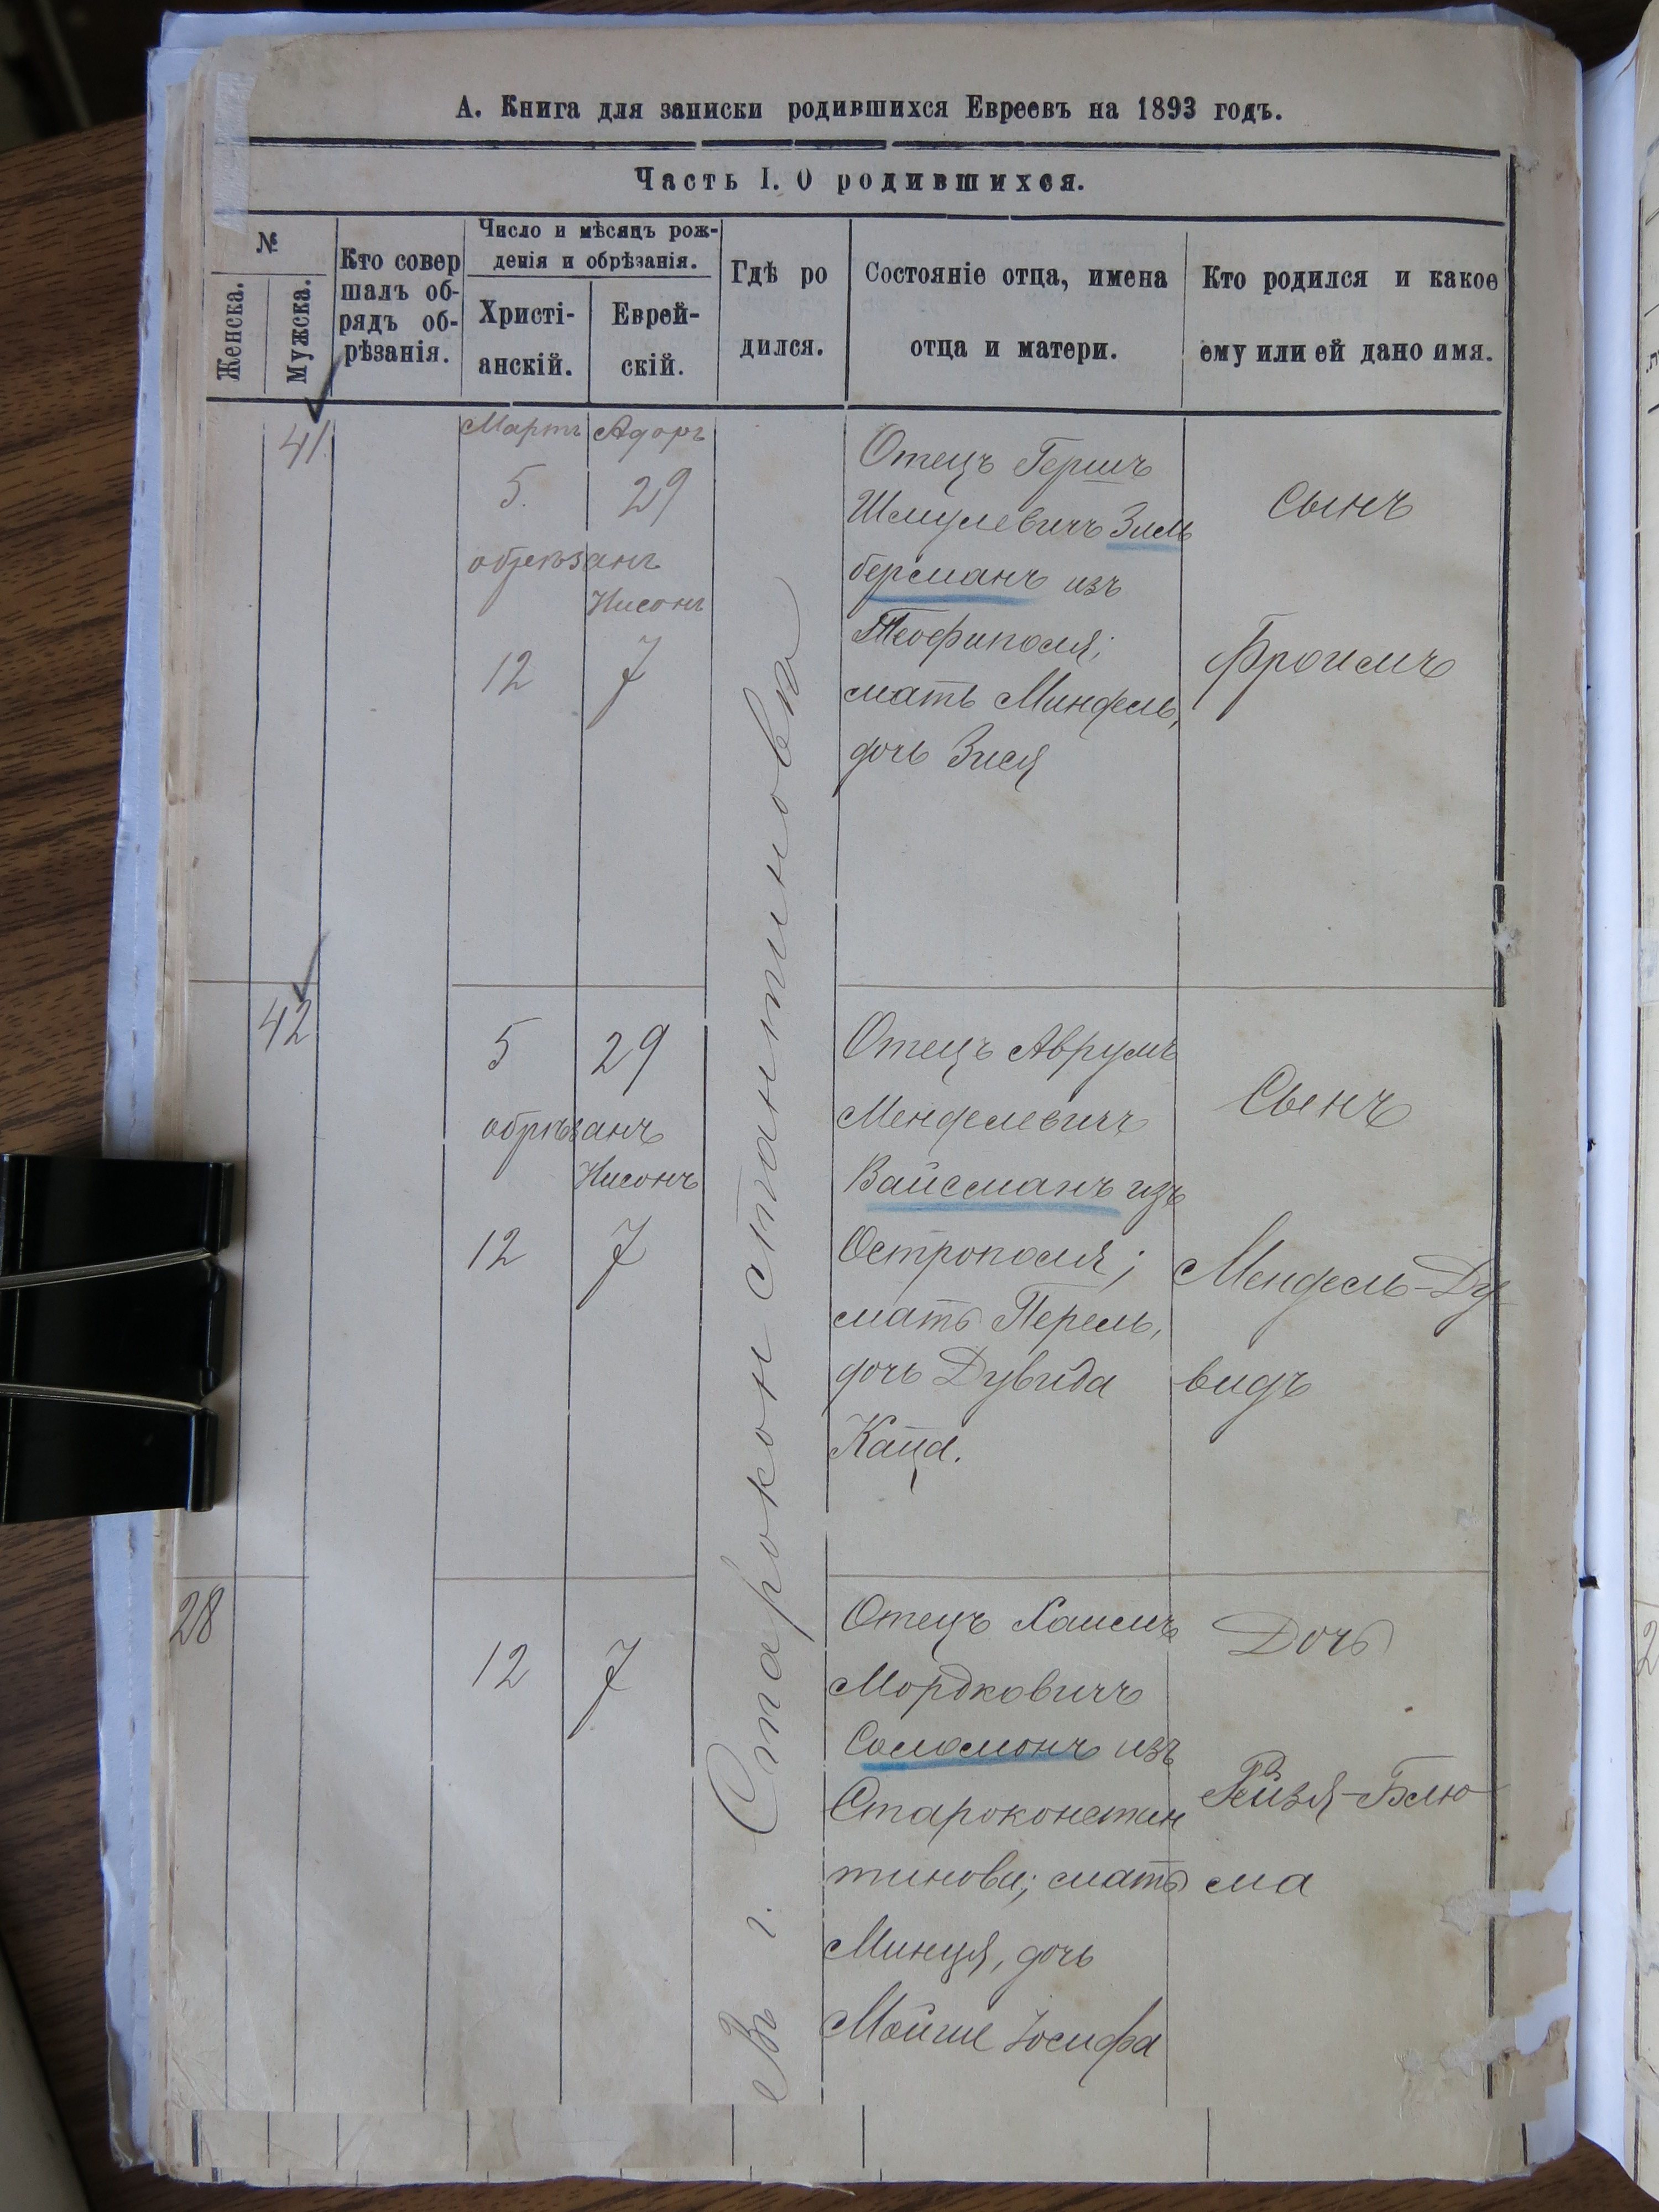 А. Книга для записки родившихся Евреевъ на 1893 годъ.
Часть I. О родившихся.
№
Женска.
Мужска.
Кто совер
шалъ об-
рядъ об-
рѣзанія.
Число и мѣсяцъ рож-
денія и обрѣзанія.
Христі-
анскій.
Еврей-
скій.
Гдѣ ро
дился.
Состояніе отца, имена
отца и матери.
Кто родился и какое
ему или ей дано имя.
41.
Мартъ Адоръ
5. 29
обрѣзанъ
Нисонъ
12 7
Въ г. Староконстантиновѣ
Отецъ Гершъ
Шмулевичъ Зиль
берманъ изъ
Теофиполя;
мать Миндель,
дочь Зися
Сынъ
Фроимъ
42
5 29
обрѣзанъ
Нисонъ
12 7
Отецъ Аврумъ
Менделевичъ
Вайсманъ изъ
Острополя;
мать Перель,
дочь Дувида
Каца.
Сынъ
Мендель-Ду
видъ
28
12 7
Отецъ Хаимъ
Мордковичъ
Соломонъ изъ
Староконстан
тинова; мать
Минця, дочь
Мойше Іосифа
Дочь
Рейзя-Блю
ма